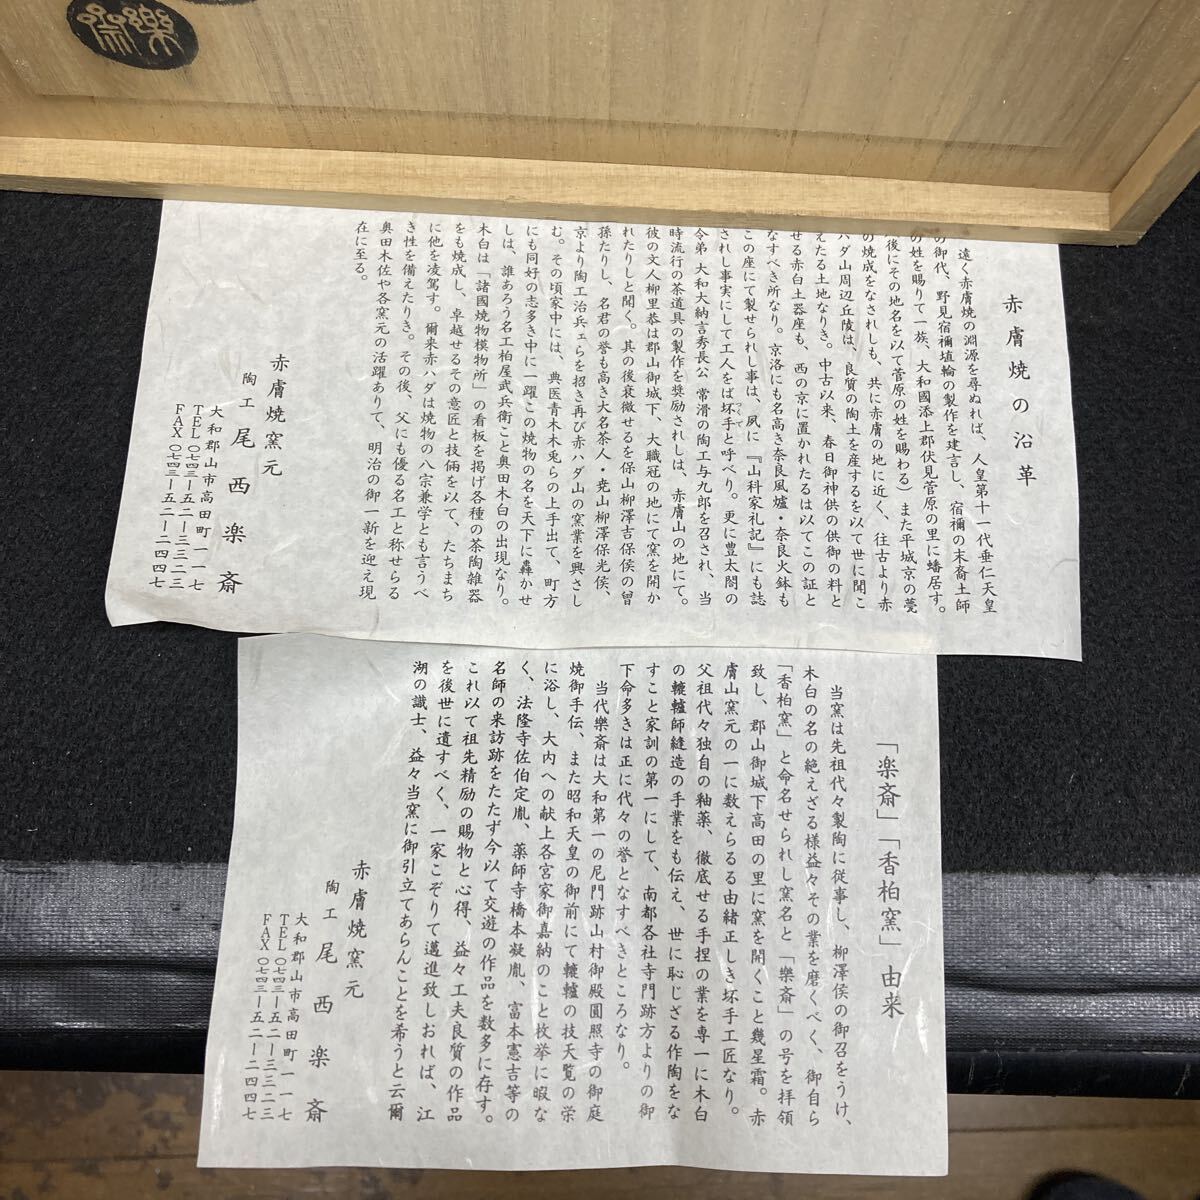 樂斎
赤膚焼の沿革
遠く赤膚焼の淵源を尋ぬれば、人皇第十一代垂仁天皇
の御代、野見宿禰埴輪の製作を建言し、宿禰の末裔土師
の姓を賜りて一族、大和國添上郡伏見菅原の里に蟠居す。
後にその地名を以て菅原の姓を賜わる）また平城京の甍
の焼成をなされしも、共に赤膚の地に近く、往古より赤
ハダ山周辺丘陵は、良質の陶土を産するを以て世に聞こ
えたる土地なりき。中古以来、春日御神供の供御の料と
せる赤白土器座も、西の京に置かれたるは以てこの証と
なすべき所なり。京洛にも名高き奈良風爐・奈良火鉢も
この座にて製せられし事は、夙に『山科家礼記』にも誌
されし事実にして工人をば坏手と呼べり。更に豊太閤の
令弟 大和大納言秀長公 常滑の陶工与九郎を召され、当
時流行の茶道具の製作を奨励されしは、赤膚山の地にて。
彼の文人柳里恭は郡山御城下、大職冠の地にて窯を開か
れたりと聞く。其の後衰微せるを保山柳澤吉保侯の曽
孫たりし、名君の誉も高き大名茶人・尭山柳澤保光侯、
京より陶工治兵ェらを招き再び赤ハダ山の窯業を興さし
む。その頃家中には、典医青木木兎らの上手出て、町方
にも同好の志多き中に一躍この焼物の名を天下に轟かせ
しは、誰あろう名工柏屋武兵衛こと奥田木白の出現なり。
木白は「諸國焼物模物所」の看板を掲げ各種の茶陶雑器
をも焼成し、卓越せるその意匠と技倆を以て、たちまち
に他を凌駕す。爾来赤ハダは焼物の八宗兼学とも言うべ
き性を備えたりき。その後、父にも優る名工と称せらる
奥田木佐や各窯元の活躍ありて、明治の御一新を迎え現
在に至る。
赤膚焼窯元
陶工 尾西楽斎
大和郡山市高田町一一七
TEL〇七四三ー五二ー三三二三
FAX〇七四三ー五二ー二四四七
「楽斎」「香柏窯」由来
当窯は先祖代々製陶に従事し、柳澤侯の御召をうけ、
木白の名の絶えざる様益々その業を磨くべく、御自ら
「香柏窯」と命名せられし窯名と「樂斎」の号を拝領
致し、郡山御城下高田の里に窯を開くこと幾星霜。赤
膚山窯元の一に数えらるる由緒正しき坏手工匠なり。
父祖代々独自の釉薬、徹底せる手捏の業を専一に木白
の轆轤師縫造の手業をも伝え、世に恥じざる作陶をな
すこと家訓の第一にして、南都各社寺門跡方よりの御
下命多きは正に代々の誉となすべきところなり。
当代樂斎は大和第一の尼門跡山村御殿圓照寺の御庭
焼御手伝、また昭和天皇の御前にて轆轤の技天覧の栄
に浴し、大内への献上各宮家御嘉納のこと枚挙に暇な
く、法隆寺佐伯定胤、薬師寺橋本凝胤、富本憲吉等の
名師の来訪跡をたたず今以て交遊の作品を数多に存す。
これ以て祖先精励の賜物と心得、益々工夫良質の作品
を後世に遺すべく、一家こぞりて邁進致しおれば、江
湖の識士、益々当窯に御引立てあらんことを希うと云爾
赤膚焼窯元
陶工 尾西楽斎
大和郡山市高田町一一七
TEL〇七四三ー五二ー三三二三
FAX〇七四三ー五二ー二四四七